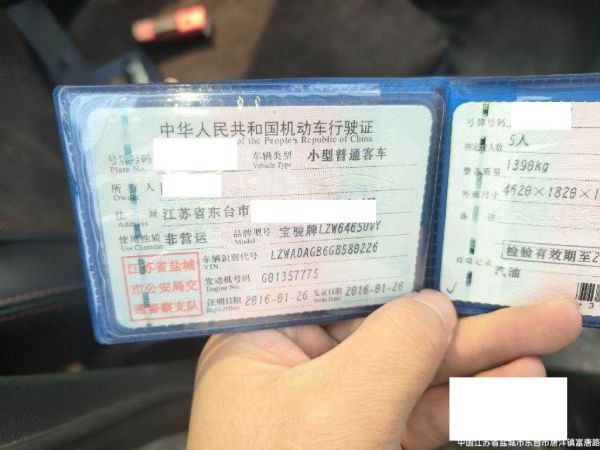 中华人民共和国机动车行驶证
of the People's Republic of China
号牌号码
Plate No.
车辆类型
Vehicle Type
小型普通客车
所有人
Owner
住址
江苏省东台市
使用性质
Use Character
非营运
品牌型号
Model
宝骏牌LZW6465UVY
江苏省盐城
市公安局交
通警察支队
车辆识别代号
VIN
LZWADAGB6GB580226
发动机号码
Engine No.
G01357775
注册日期
Register Date
2016-01-26
发证日期
Issue Date
2016-01-26
号牌号码
核定载人数
5人
整备质量
1390kg
外廓尺寸
4620×1820×1
备注
检验有效期至2
检验记录
汽油
中国江苏省盐城市东台市唐洋镇富唐路